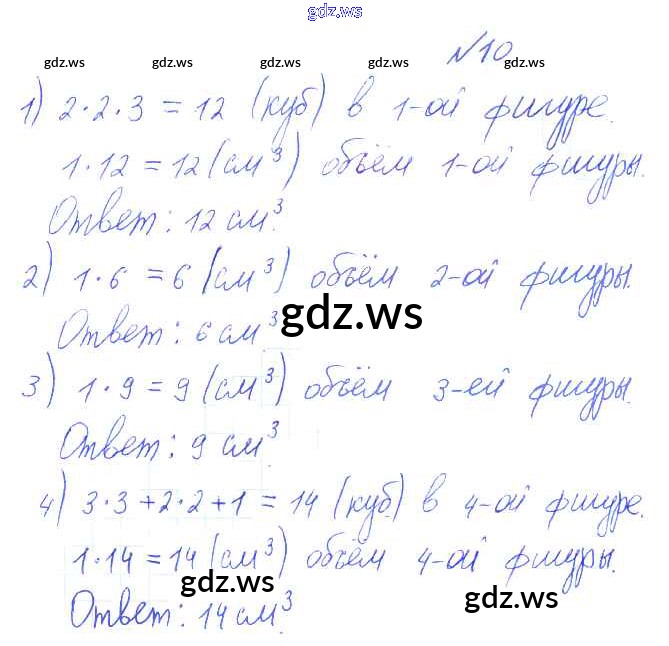 gdz.ws
№10
gdz.ws gdz.ws gdz.ws gdz.ws gdz.ws
1) 2·2·3 = 12 (куб) в 1-ой фигуре.
1·12 = 12 (см³) объём 1-ой фигуры.
Ответ: 12 см³.
2) 1·6 = 6 (см³) объём 2-ой фигуры.
gdz.ws
Ответ: 6 см³
3) 1·9 = 9 (см³) объём 3-ей фигуры.
Ответ: 9 см³.
4) 3·3+2·2+1 = 14 (куб.) в 4-ой фигуре.
1·14 = 14 (см³) объём 4-ой фигуры.
gdz.ws gdz.ws
Ответ: 14 см³.